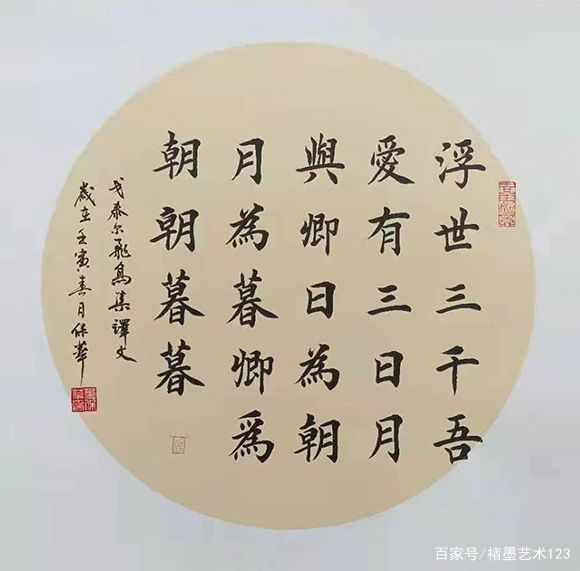 浮世三千吾
愛有三日月
與卿日為朝
月為暮卿為
朝朝暮暮
戈泰尔飛鳥集譯文
歲在壬寅春月保華
百家号/楮墨艺术123